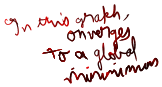 In this graph,
onverges
to a global
minimum